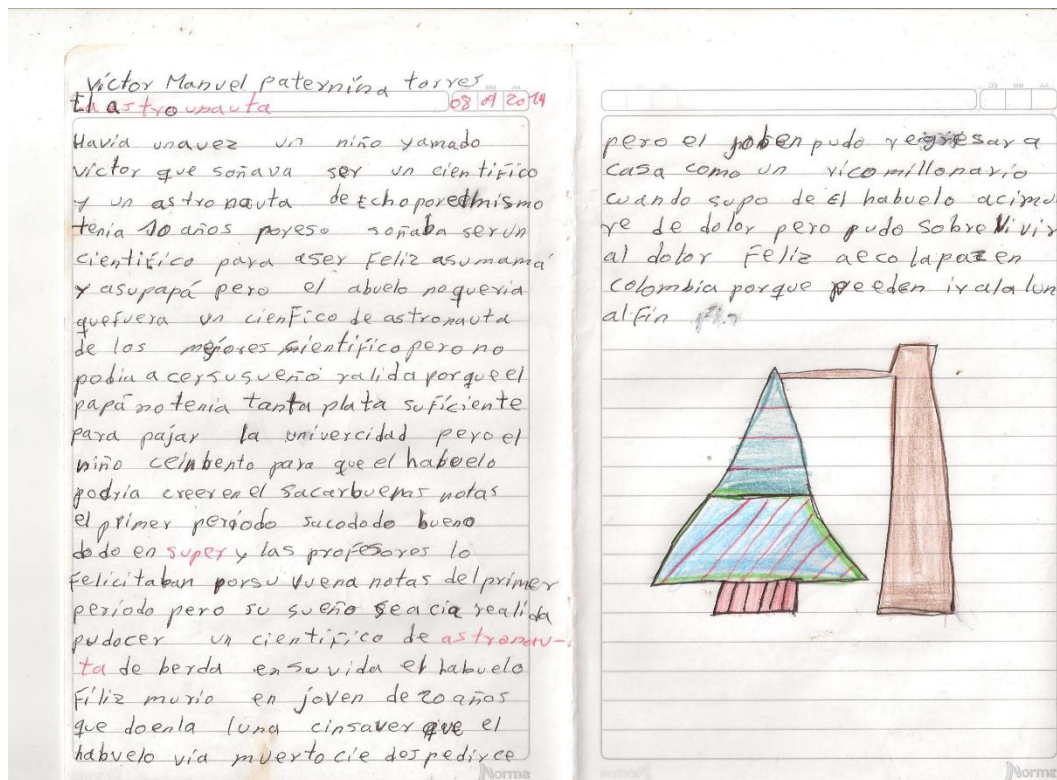 Víctor Manuel Paternina torres
El astrounauta
08 09 2014
Havia unavez un niño yamado
victor que soñava ser un cientifico
y un astronauta de Echoporelmismo
tenia 10 años poreso soñaba serun
cientifico para aser Feliz asumamá
y asupapá pero el abuelo noqueria
quefuera un cienFico de astronauta
de los mejores cientifico pero no
podia acersusueño ralida porque el
papá notenia tanta plata suficiente
para pajar la univercidad pero el
niño ceinbento para que el habuelo
podria creer en el sacarbuenas notas
el primer período sacododo bueno
dodo en super y las profesores lo
Felicitaban porsu vuena notas del primer
período pero su sueño seacia realida
pudocer un cientifico de astronau-
ta de berda ensuvida el habuelo
Filiz murio en joven de 20 años
que doenla luna cinsaver que el
habuelo via muerto cie dospedirce
DD MM AA
pero el joben pudo regresar a
casa como un ricomillonario
cuando supo de el habuelo acimu
re de dolor pero pudo sobrevivir
al dolor Feliz aecolapazen
colombia porque peeden iralalun
al Fin
Norma
Norma